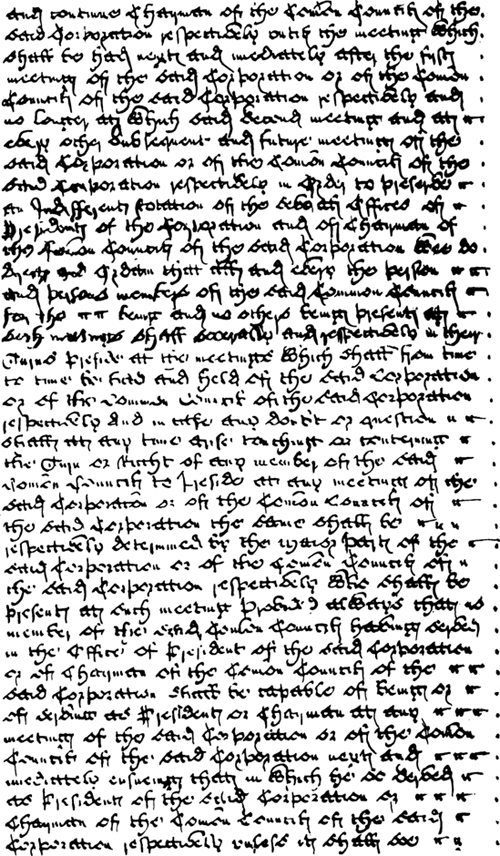 and continue Chairman of the Comōn Councill of the
said Corporation respectively untill the meeting which
shall be had next and imediately after the first
meeting of the said Corporation or of the Comōn
Councill of the said Corporation respectively and
no longer att which said second meeting and att
every other subsequent and future meeting of the
said Corporation or of the Comōn Councill of the
said Corporation respectively in order to preserve
an Indifferent rotation of the severall Offices of
President of the Corporation and of Chairman of
the Comōn Councill of the said Corporation Wee do
direct and Ordain that all and every the person
and persons members of the said Common Councill
for the time being and no others being present att
such meetings shall severally and respectively in their
Turns Preside at the meetings which shall from time
to time be had and held of the said Corporation
or of the Common Councill of the said Corporation
respectively and in case any doubt or question
shall att any time arise touching or concerning
the Turn or Right of any member of the said
Comōn Councill to Preside att any meeting of the
said Corporation or of the Comōn Councill of
the said Corporation the same shall be
respectively determined by the major part of the
said Corporation or of the Comōn Councill of
the said Corporation respectively who shall be
present att such meeting Provided always that no
member of the said Comōn Councill having served
in the Office of President of the said Corporation
or of Chairman of the Comōn Councill of the
said Corporation shall be capable of being or
of serving as President or Chairman att any
meeting of the said Corporation or of the Comōn
Councill of the said Corporation next and
imediately ensueing that in which he so served
as President of the said Corporation or
Chairman of the Comōn Councill of the said
Corporation respectively unless it shall soe